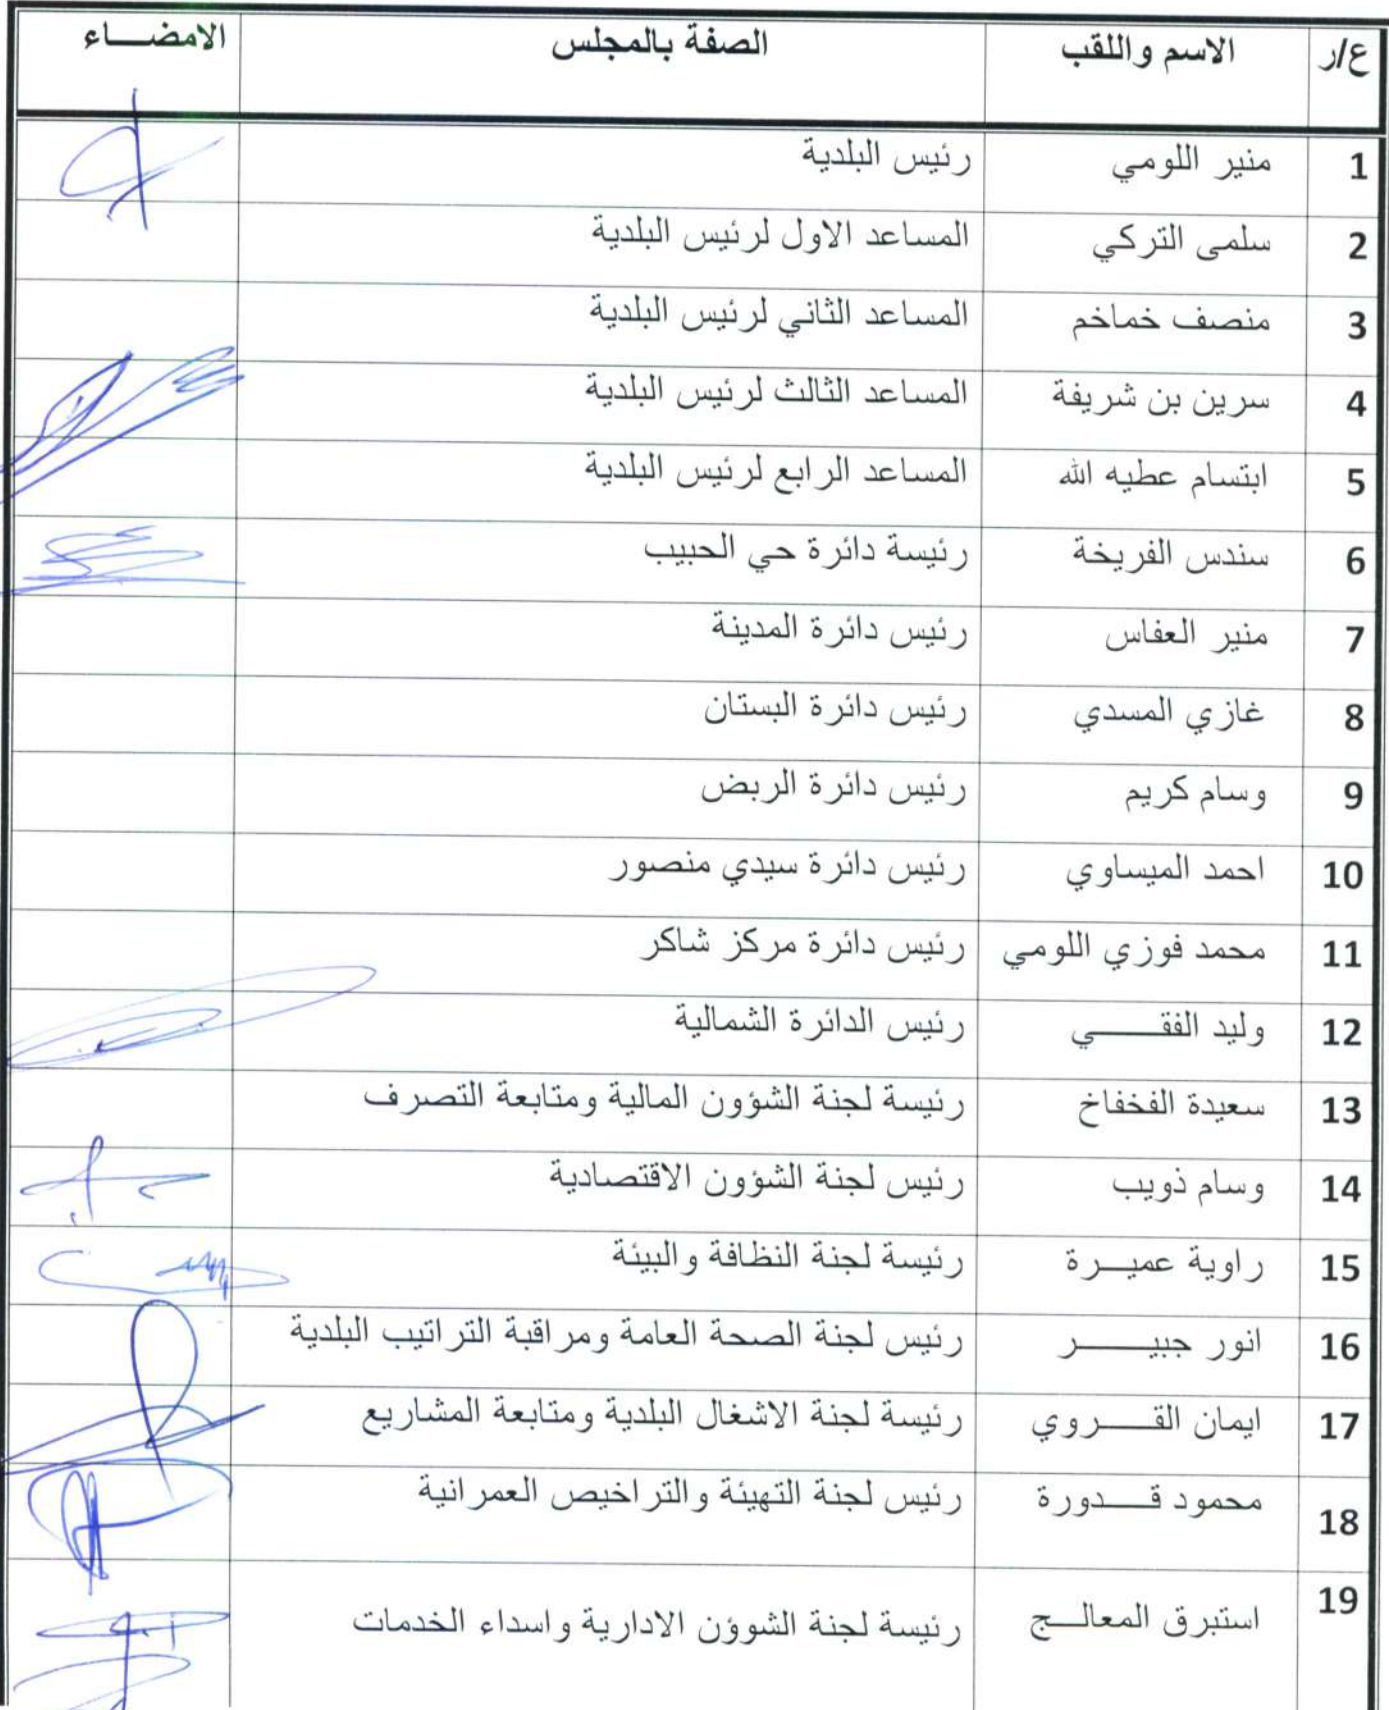 ع/ر الاسم واللقب الصفة بالمجلس الامضـــاء
1 منير اللومي رئيس البلدية
2 سلمى التركي المساعد الاول لرئيس البلدية
3 منصف خماخم المساعد الثاني لرئيس البلدية
4 سرين بن شريفة المساعد الثالث لرئيس البلدية
5 ابتسام عطيه الله المساعد الرابع لرئيس البلدية
6 سندس الفريخة رئيسة دائرة حي الحبيب
7 منير العفاس رئيس دائرة المدينة
8 غازي المسدي رئيس دائرة البستان
9 وسام كريم رئيس دائرة الربض
10 احمد الميساوي رئيس دائرة سيدي منصور
11 محمد فوزي اللومي رئيس دائرة مركز شاكر
12 وليد الفقـــــي رئيس الدائرة الشمالية
13 سعيدة الفخفاخ رئيسة لجنة الشؤون المالية ومتابعة التصرف
14 وسام ذويب رئيس لجنة الشؤون الاقتصادية
15 راوية عميـــرة رئيسة لجنة النظافة والبيئة
16 انور جبيـــــر رئيس لجنة الصحة العامة ومراقبة التراتيب البلدية
17 ايمان القـــــروي رئيسة لجنة الاشغال البلدية ومتابعة المشاريع
18 محمود قـــــدورة رئيس لجنة التهيئة والتراخيص العمرانية
19 استبرق المعالـــج رئيسة لجنة الشوؤن الادارية واسداء الخدمات